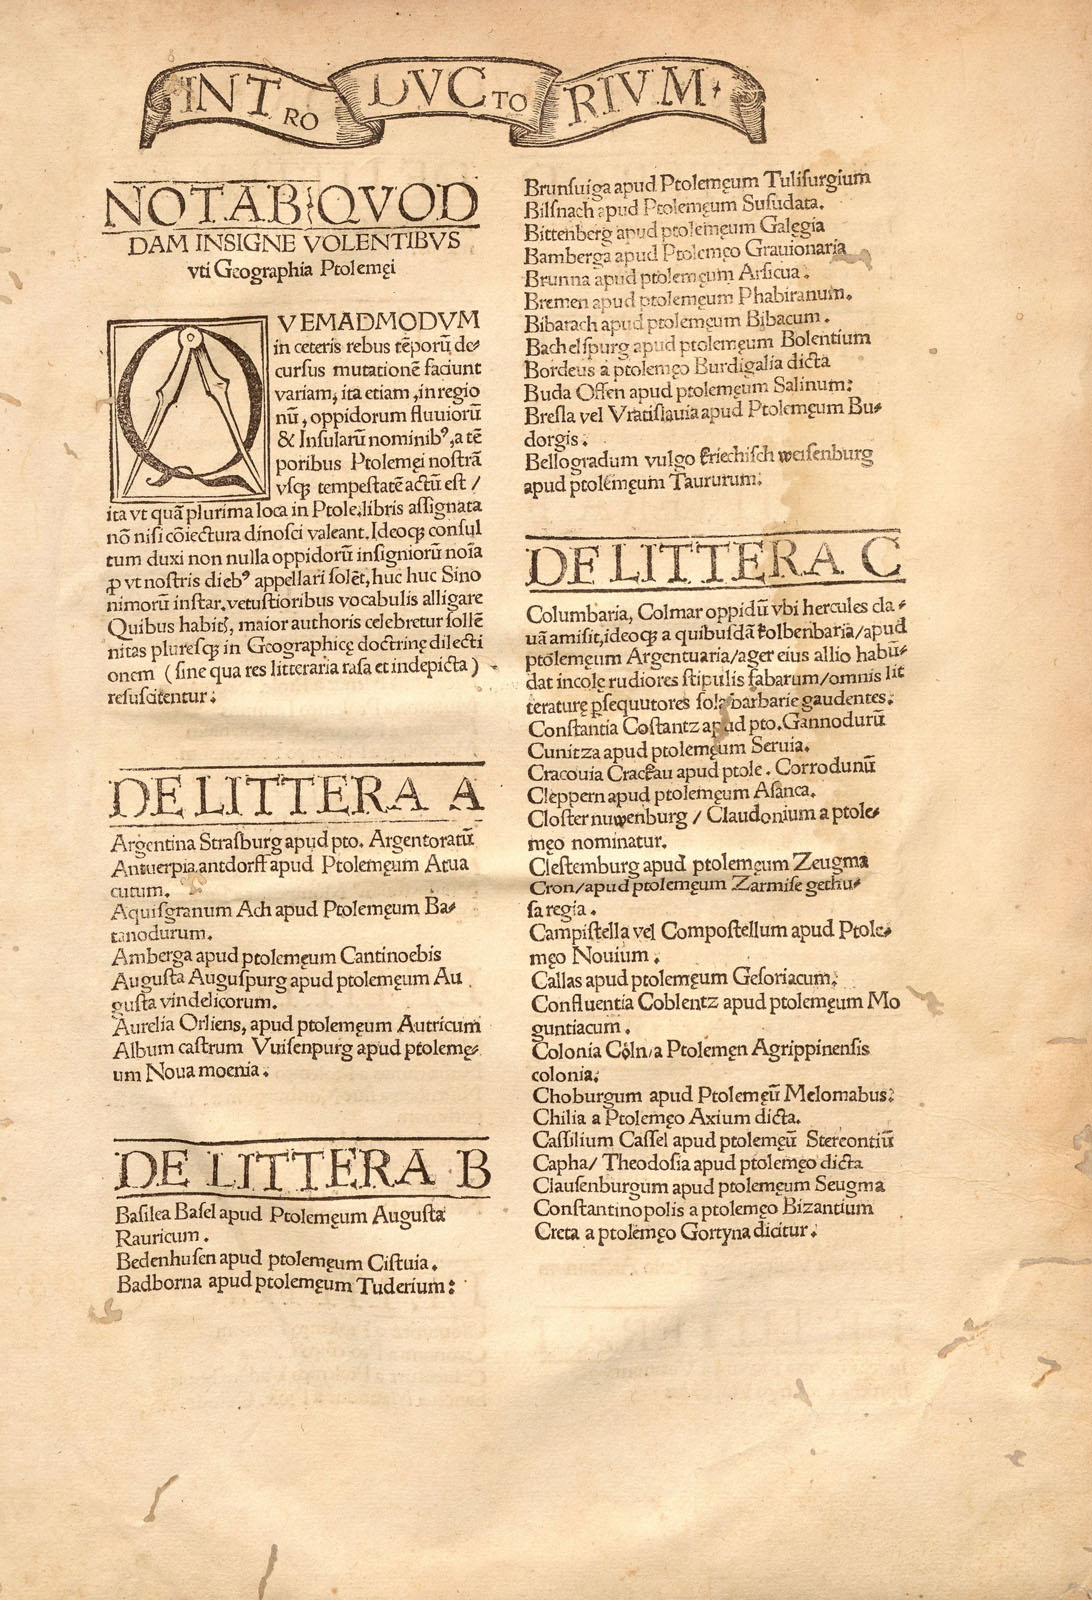 INTRODVCTORIVM.
NOTAB QVOD
DAM INSIGNE VOLENTIBVS
vti Geographia Ptolemęi
QVEMADMODVM
in ceteris rebus tēporū de⸗
cursus mutationē faciunt
variam, ita etiam, in regio
nū, oppidorum fluuiorū
& Insularū nominibꝰ, a tē
poribus Ptolemęi nostrā
vsqꝫ tempestatē actū est /
ita vt quā plurima loca in Ptole. libris assignata
nō nisi cōiectura dinosci valeant. Ideoqꝫ consul
tum duxi non nulla oppidorū insigniorū noīa
ꝓ vt nostris diebꝰ appellari solēt, huc huc Sino
nimorū instar, vetustioribus vocabulis alligare
Quibus habitꝭ, maior authoris celebretur sollē
nitas pluresqꝫ in Geographicę doctrinę dilecti
onem (sine qua res litteraria rasa et indepicta)
resuscitentur :
DE LITTERA A
Argentina Strasburg apud pto. Argentoratū
Antuerpia antdorff apud Ptolemęum Atua
cutum.
Aquisgranum Ach apud Ptolemęum Ba⸗
tanodurum.
Amberga apud ptolemęum Cantinoebis
Augusta Auguspurg apud ptolemęum Au
gusta vindelicorum.
Aurelia Orliens, apud ptolemęum Autricum
Album castrum Vuisenpurg apud ptolemę⸗
um Noua moenia.
DE LITTERA B
Basilea Basel apud Ptolemęum Augusta
Rauricum.
Bedenhusen apud ptolemęum Cistuia.
Badborna apud ptolemęum Tuderium :
Brunsuiga apud Ptolemęum Tulisurgium
Bilsnach apud Ptolemęum Susudata.
Bittenberg apud ptolemęum Galęgia
Bamberga apud Ptolemęo Grauionaria
Brunna apud ptolemęum Arsicua.
Bremen apud ptolemęum Phabiranum.
Bibarach apud ptolemęum Bibacum.
Bachelspurg apud ptolemęum Bolentium
Bordeus a ptolemęo Burdigalia dicta
Buda Offen apud ptolemęum Salinum:
Bresla vel Vratislauia apud Ptolemęum Bu⸗
dorgis.
Bellogradum vulgo kriechisch weisenburg
apud ptolemęum Taururum:
DE LITTERA C
Columbaria, Colmar oppidū vbi hercules cla⸗
uā amisit, ideoqꝫ a quibusdā kolbenbaria / apud
ptolemęum Argentuaria / ager eius allio habū⸗
dat incolę rudiores stipulis fabarum / omnis lit
teraturę ꝑsequutores sola barbarie gaudentes:
Constantia Costantz apud pto. Gannodurū
Cunitza apud ptolemęum Seruia.
Cracouia Crackau apud ptole. Corrodunū
Cleppern apud ptolemęum Asanca.
Closter nuwenburg / Claudonium a ptole⸗
męo nominatur.
Clestemburg apud ptolemęum Zeugma
Cron / apud ptolemęum Zarmise gethu⸗
sa regia.
Campistella vel Compostellum apud Ptole⸗
męo Nouium.
Callas apud ptolemęum Gesoriacum:
Confluentia Coblentz apud ptolemęum Mo
guntiacum.
Colonia Cöln / a Ptolemęn Agrippinensis
colonia:
Choburgum apud Ptolemęū Melomabus:
Chilia a Ptolemęo Axium dicta.
Cassilium Cassel apud ptolemęū Stereontiū
Capha / Theodosia apud ptolemęo dicta
Clausenburgum apud ptolemęum Seugma
Constantinopolis a ptolemęo Bizantium
Creta a ptolemęo Gortyna dicitur: